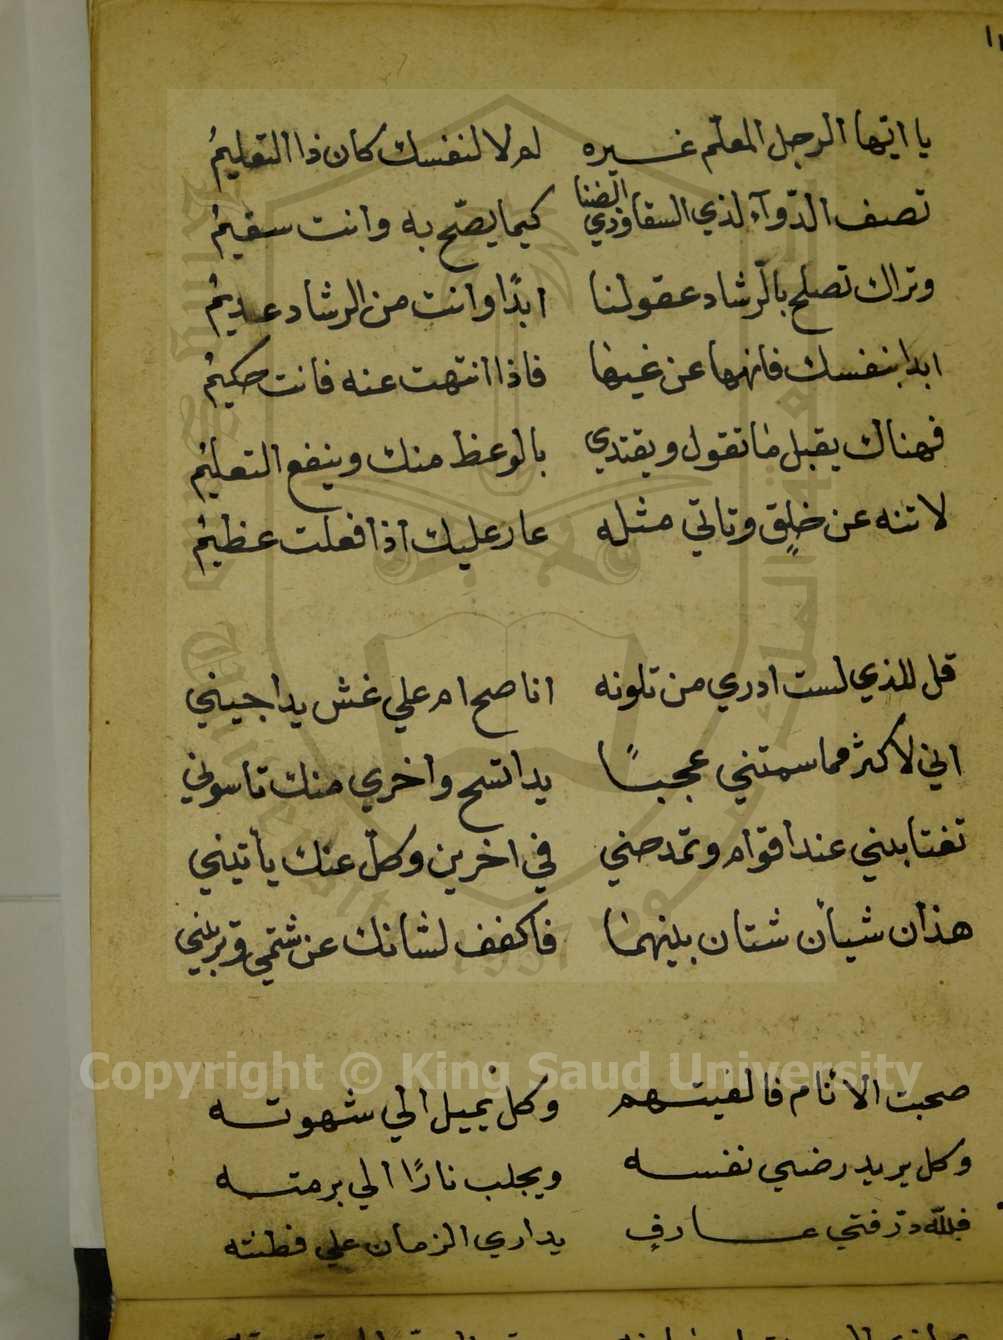 يا ايها الرجل المعلّم غيره هلا لنفسك كان ذا التعليمُ
تصف الدّوآء لذي السقاوذي الضنا كيما يصحّ به وانت سقيمُ
وتراك تصلح بالرشاد عقولنا ابدًا وانت من الرشاد عديمُ
ابدا بنفسك فانهها عن غيها فاذا انتهت عنه فانت حكيمُ
فهناك يقبل ما تقول ويقتدي بالوعظ منك وينفع التعليمُ
لا تنه عن خلق وتاتي مثله عار عليك اذا فعلت عظيمُ
قل للذي لست ادري من تلونه اناصح ام علي غش يداجيني
اني لاكثر مما سمتني عجبًا يدا تشح واخري منك تاسوني
تغتابني عند اقوام وتمدحني في اخرين وكل عنك ياتيني
هذان شيأن شتان بينهما فاكفف لشانك عن شتمي وتزييني
صحبت الانام فالفيتهم وكل يميل الي شهوته
وكل يريد رضي نفسه ويجلب نارًا الي برمته
فلله درّ فتي عارفٍ يداري الزمان علي فطنته
Copyright © King Saud University
1957